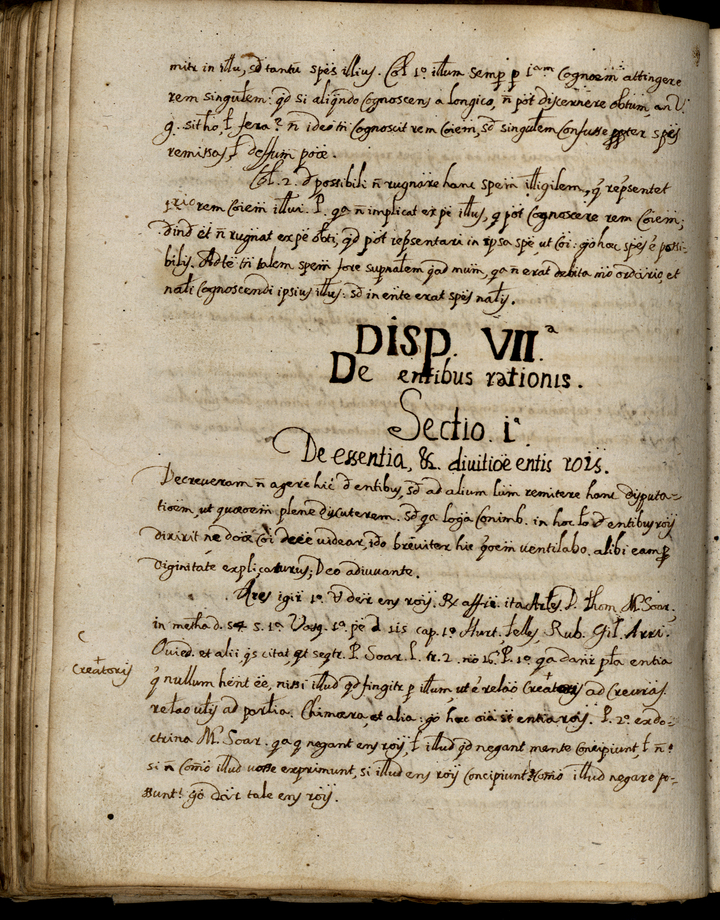 mitr in illu, sd tantu spēs illius. Col 1º illum semp p 1am Cognoēm attingere
rem singulem: qd si aliqndo Cognoscens a longico, ñ pót discernere obtum, an V.
g. sit ho, ł fera? ñ ideo tñ Cognoscit rem Coiem, sd singulem Confusse ppter spēs
remissas, ł
Col. 2. possibili ñ rugnare hanc speim illigilem, q repsentet
rem Coiem illui. P. qa ñ implicat ex pē illus, q pót Cognoscere rem Coiem;
dind et ñ rugnat ex pē obti, qd pót repsentari in ipsa spē, ut Coi: go hoc spēs ē possi-
bilis. Adte tñ talem speim fore supralem qad mum, qa ñ erat debita mo ordirio, et
nāli Cognoscendi ipsius illus: sd in ente erat spēs nalis.
DISP. VII.a
De entibus rationis.
Sectio. 1ª
De essentia, &. diuitioē entis rois.
Decreueram ñ agere hic đ entibus, sd ad alium lūm remitere hanc disputa=
tioem, ut quaoem plene discuterem. Sd qa loga Conimb. in hoc lo đ entibus rois
dixirit ne Coi deēe videar, ido breuiter hic qoem ventilabo, alibi eam p
diginitate explicaturus, Deo adiuuante.
Ares igir 1º V der ens rois. Rx affir. ita Artes D. Thom. Mr Soar.
in metha d. 54. s. 1. Vasq. 1ª pe d 115 cap. 1º Hurt. Telles, Rub. Gil. Arri.
Ouied. et alii qs citat, qt seqtr. P. Soar. L. tr. 2. nº 16. P. 1º qa danr pła entia
q nullum hent ēe, nissi illud qd fingitr p illum, ut ē relaō Creatoris ad Creuras.
C
Creatoris
relaō ulis ad partia. Chimoera, et alia: go hec oia st entia rois. P. 2º ex do-
ctrina Mr Soar. qa q negant ens rois, ł illud qd negant mente Concipiunt, ł ñ:
si ñ Como illud uoce exprimunt, si illud ens rois Concipiunt Como illud negare po-
ssunt! go dar tale ens rois.